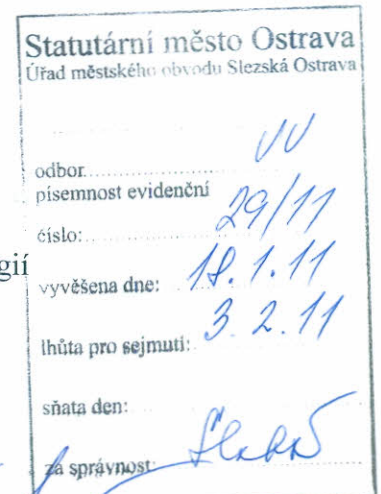 Statutární město Ostrava
Úřad městského obvodu Slezská Ostrava
odbor VV
písemnost evidenční
číslo: 29/11
gií
vyvěšena dne: 18.1.11
lhůta pro sejmutí: 3.2.11
sňata den:
za správnost: